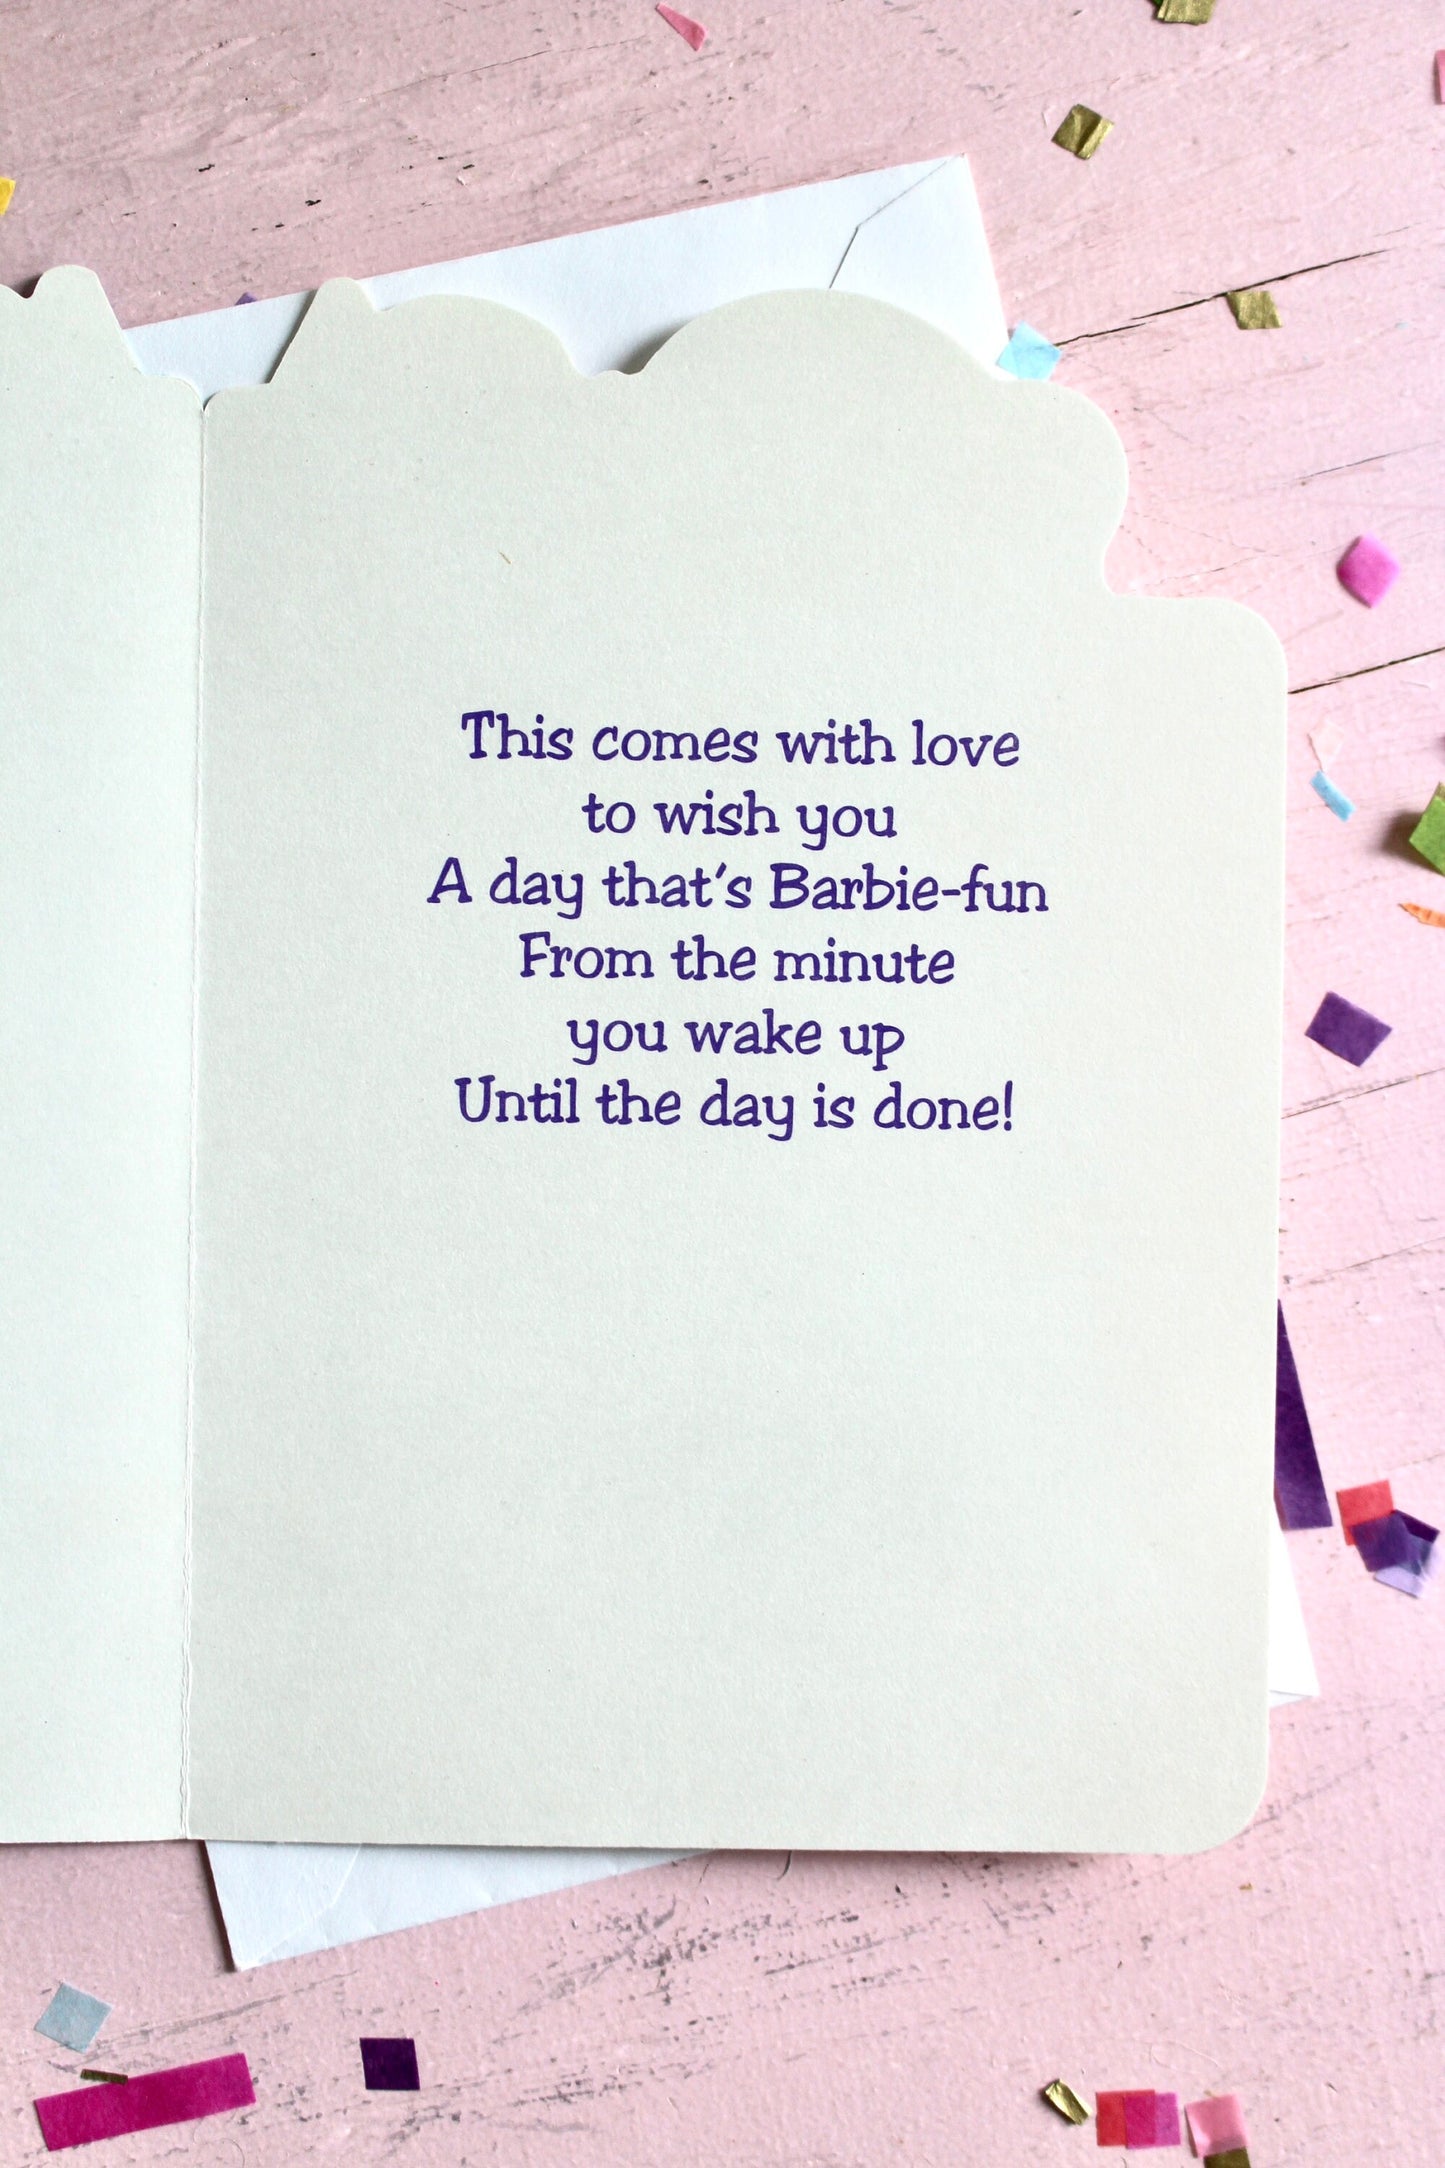 This comes with love
to wish you
A day that's Barbie-fun
From the minute
you wake up
Until the day is done!